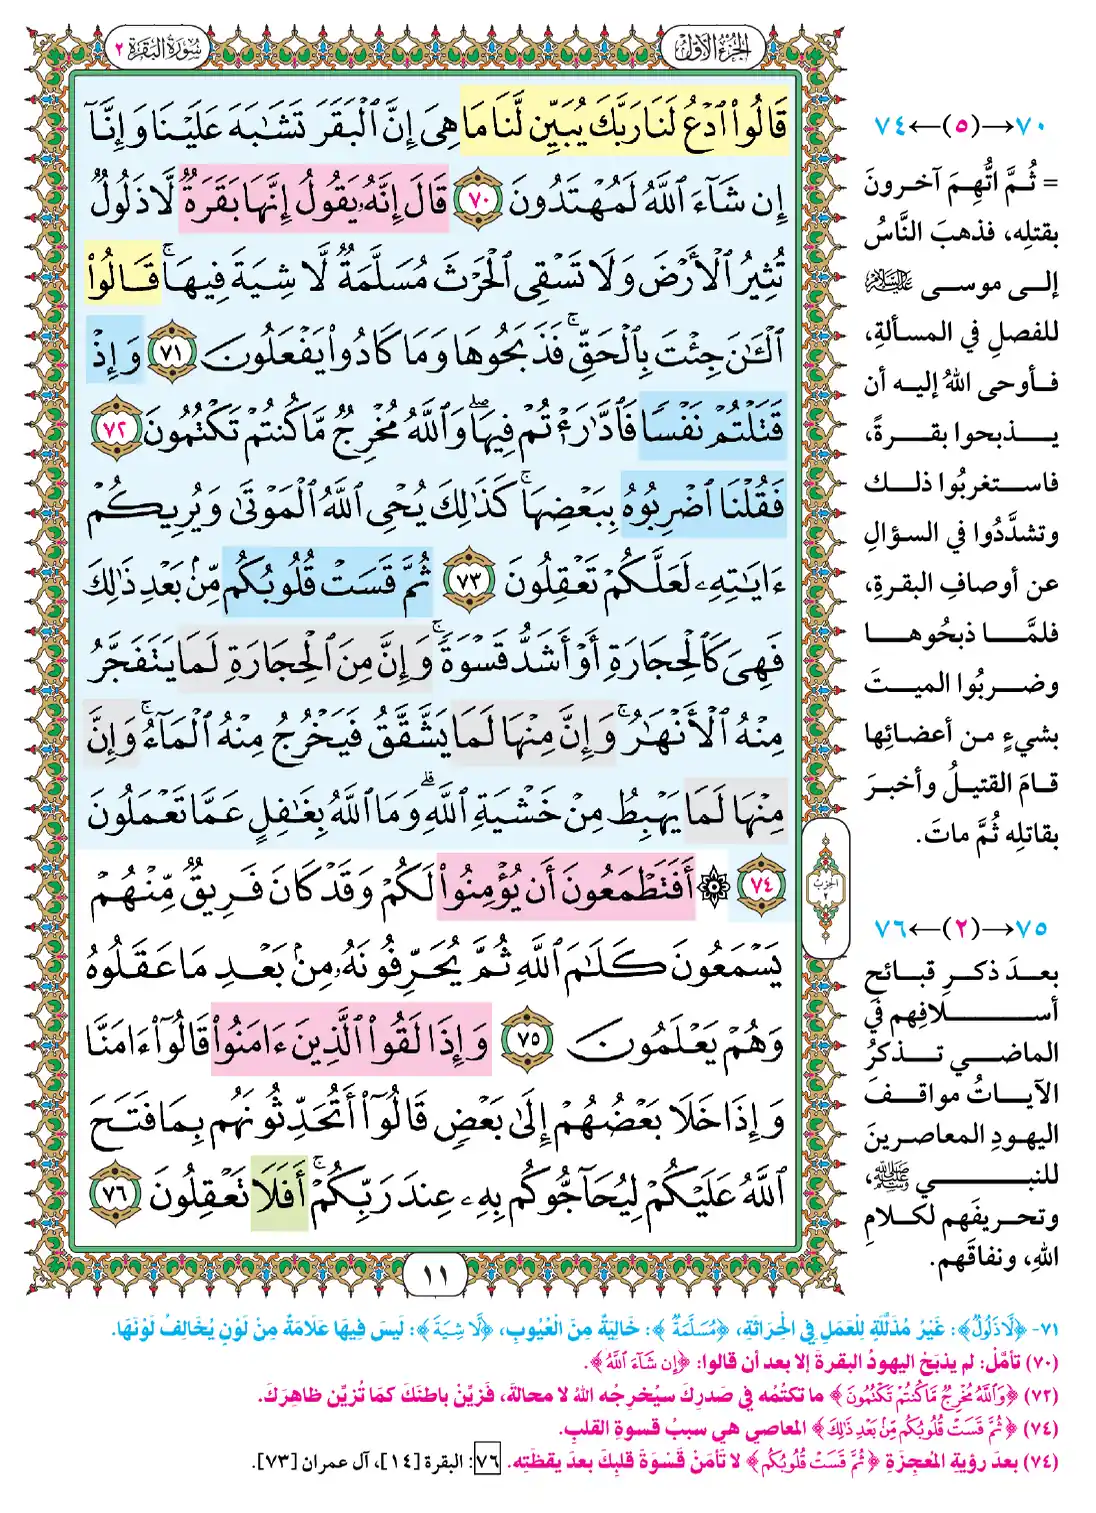 الجزء الأول
سورة البقرة ٢
قَالُوا۟ ٱدْعُ لَنَا رَبَّكَ يُبَيِّن لَّنَا مَا هِىَ إِنَّ ٱلْبَقَرَ تَشَٰبَهَ عَلَيْنَا وَإِنَّآ
إِن شَآءَ ٱللَّهُ لَمُهْتَدُونَ ٧٠ قَالَ إِنَّهُۥ يَقُولُ إِنَّهَا بَقَرَةٌ لَّا ذَلُولٌ
تُثِيرُ ٱلْأَرْضَ وَلَا تَسْقِى ٱلْحَرْثَ مُسَلَّمَةٌ لَّا شِيَةَ فِيهَا ۚ قَالُوا۟
ٱلْـَٰٔنَ جِئْتَ بِٱلْحَقِّ ۚ فَذَبَحُوهَا وَمَا كَادُوا۟ يَفْعَلُونَ ٧١ وَإِذْ
قَتَلْتُمْ نَفْسًا فَٱدَّٰرَْٰٔتُمْ فِيهَا ۖ وَٱللَّهُ مُخْرِجٌ مَّا كُنتُمْ تَكْتُمُونَ ٧٢
فَقُلْنَا ٱضْرِبُوهُ بِبَعْضِهَا ۚ كَذَٰلِكَ يُحْىِ ٱللَّهُ ٱلْمَوْتَىٰ وَيُرِيكُمْ
ءَايَٰتِهِۦ لَعَلَّكُمْ تَعْقِلُونَ ٧٣ ثُمَّ قَسَتْ قُلُوبُكُم مِّنۢ بَعْدِ ذَٰلِكَ
فَهِىَ كَٱلْحِجَارَةِ أَوْ أَشَدُّ قَسْوَةً ۚ وَإِنَّ مِنَ ٱلْحِجَارَةِ لَمَا يَتَفَجَّرُ
مِنْهُ ٱلْأَنْهَٰرُ ۚ وَإِنَّ مِنْهَا لَمَا يَشَّقَّقُ فَيَخْرُجُ مِنْهُ ٱلْمَآءُ ۚ وَإِنَّ
مِنْهَا لَمَا يَهْبِطُ مِنْ خَشْيَةِ ٱللَّهِ ۗ وَمَا ٱللَّهُ بِغَٰفِلٍ عَمَّا تَعْمَلُونَ
٧٤ ۞ أَفَتَطْمَعُونَ أَن يُؤْمِنُوا۟ لَكُمْ وَقَدْ كَانَ فَرِيقٌ مِّنْهُمْ
يَسْمَعُونَ كَلَٰمَ ٱللَّهِ ثُمَّ يُحَرِّفُونَهُۥ مِنۢ بَعْدِ مَا عَقَلُوهُ
وَهُمْ يَعْلَمُونَ ٧٥ وَإِذَا لَقُوا۟ ٱلَّذِينَ ءَامَنُوا۟ قَالُوٓا۟ ءَامَنَّا
وَإِذَا خَلَا بَعْضُهُمْ إِلَىٰ بَعْضٍ قَالُوٓا۟ أَتُحَدِّثُونَهُم بِمَا فَتَحَ
ٱللَّهُ عَلَيْكُمْ لِيُحَآجُّوكُم بِهِۦ عِندَ رَبِّكُمْ ۚ أَفَلَا تَعْقِلُونَ ٧٦
الحزب
٢
١١
٧٠→(٥)←٧٤
= ثُمَّ اتُّهِمَ آخرونَ
بقتلِه، فذهبَ النَّاسُ
إلى موسى عليه السلام
للفصلِ في المسألةِ،
فأوحى اللهُ إليه أن
يذبحوا بقرةً،
فاستغربُوا ذلك
وتشدَّدُوا في السؤالِ
عن أوصافِ البقرةِ،
فلمَّا ذبحُوها
وضربُوا الميتَ
بشيءٍ من أعضائِها
قامَ القتيلُ وأخبرَ
بقاتلِه ثُمَّ ماتَ.
٧٥→(٢)←٧٦
بعدَ ذكرِ قبائحِ
أسلافِهم في
الماضي تذكرُ
الآياتُ مواقفَ
اليهودِ المعاصرينَ
للنبي ﷺ،
وتحريفَهم لكلامِ
اللهِ، ونفاقَهم.
٧١- ﴿لَّا ذَلُولٌ﴾: غَيْرُ مُذَلَّلَةٍ لِلْعَمَلِ فِي الْحِرَاثَةِ، ﴿مُسَلَّمَةٌ﴾: خَالِيَةٌ مِنَ الْعُيُوبِ، ﴿لَّا شِيَةَ﴾: لَيْسَ فِيهَا عَلَامَةٌ مِنْ لَوْنٍ يُخَالِفُ لَوْنَهَا.
(٧٠) تأمَّلْ: لم يذبَحْ اليهودُ البقرةَ إلا بعد أن قالوا: ﴿إِن شَآءَ ٱللَّهُ﴾.
(٧٢) ﴿وَٱللَّهُ مُخْرِجٌ مَّا كُنتُمْ تَكْتُمُونَ﴾ ما تكتُمُه في صَدرِكَ سيُخْرِجُه اللهُ لا محالةَ، فَزَيِّنْ باطنَكَ كمَا تُزيِّن ظاهِرَكَ.
(٧٤) ﴿ثُمَّ قَسَتْ قُلُوبُكُم مِّنۢ بَعْدِ ذَٰلِكَ﴾ المعاصِي هي سببُ قسوةِ القلبِ.
(٧٤) بعدَ رؤيةِ المُعجِزَةِ ﴿ثُمَّ قَسَتْ قُلُوبُكُم﴾ لا تأمَنْ قَسْوَةَ قلبِكَ بعدَ يقظَتِه. ٧٦: البقرة [١٤]، آل عمران [٧٣].